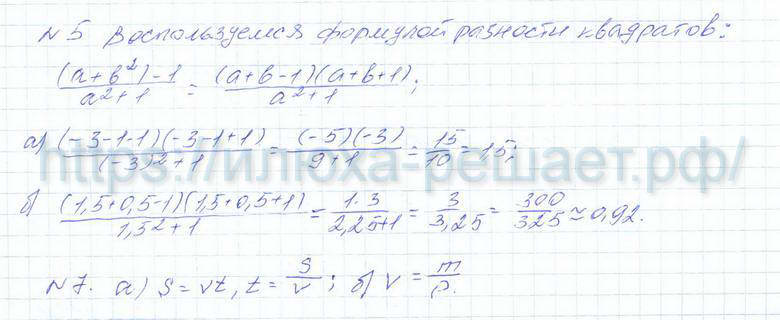 №5 Воспользуемся формулой разности квадратов:
(a+b²)-1/a²+1 = (a+b-1)(a+b+1)/a²+1;
а) (-3-1-1)(-3-1+1)/(-3)²+1 = (-5)(-3)/9+1 = 15/10 = 1,5;
https://илюха-решает.рф/
б) (1,5+0,5-1)(1,5+0,5+1)/1,5²+1 = 1·3/2,25+1 = 3/3,25 = 300/325 ≈ 0,92.
№7. а) S=vt, t=S/v; б) V=m/ρ.